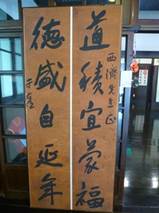 道積宜蒙福
西濱先生正
德盛自延年